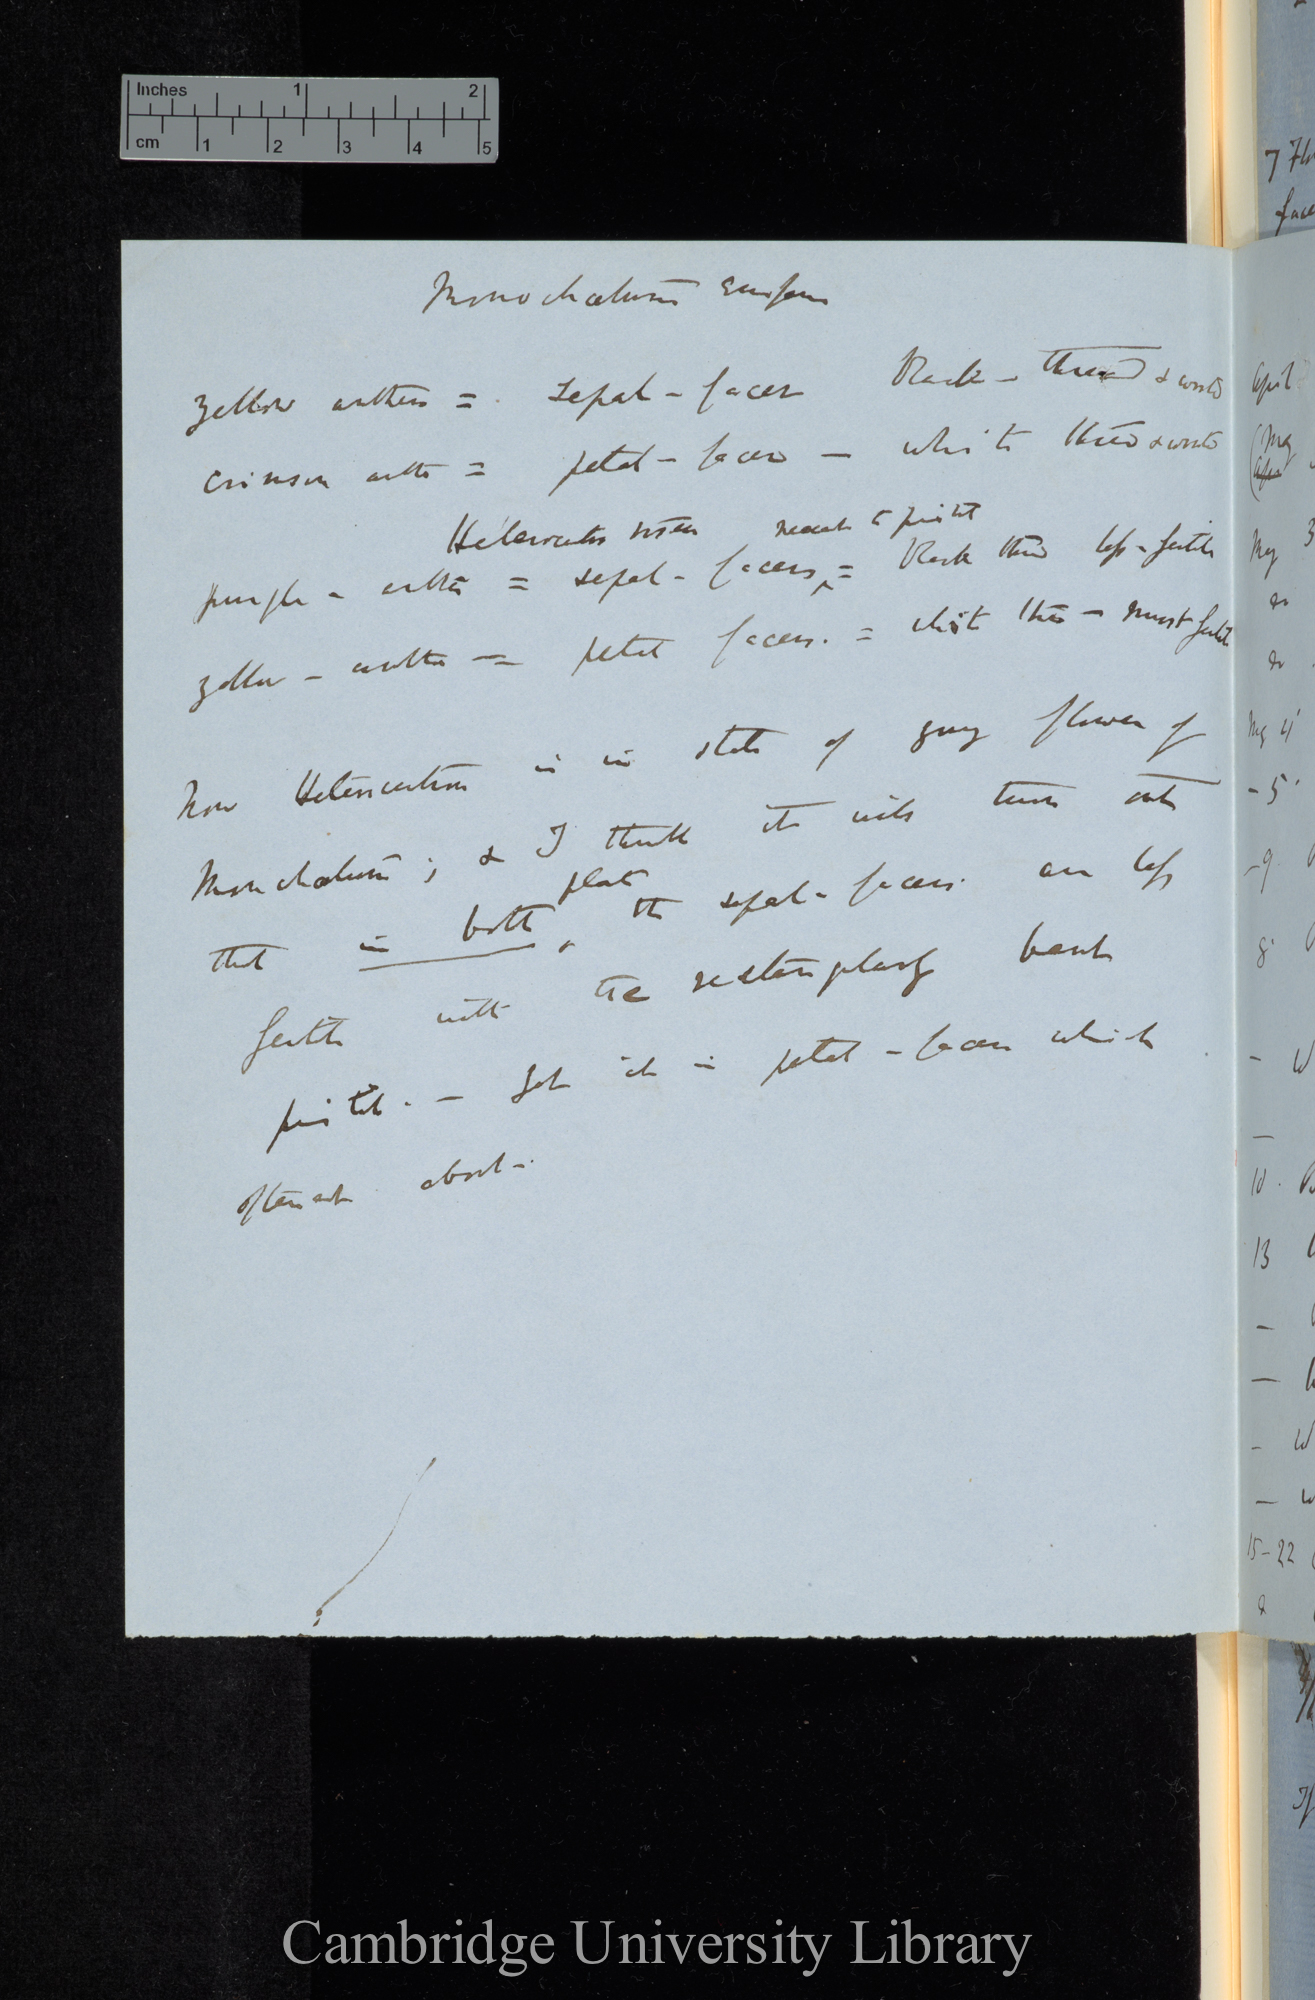 Inches 1 2
cm 1 2 3 4 5
Monochætum ensiferum
Yellow anthers = sepal-facers Black - thread & worsted
Crimson anth = petal-facers — white thread & worsted
Heterocentron roseum nearest to pistil
purple - anthers = sepal-facers = Black thread less-fertile
yellow - anthers = petal facers. = white thread - most fertile
Now Heterocentron is in state of young flower of
Monochætum; & I think it will turn out
that in both plants, the sepal-facers are less
fertile with the rectangularly bent
pistil. — Yet it is petal-facers which
oftenest abort. —
7
April
May
May
do
do
May 4
- 5
- 9
8
—
—
10.
13
—
—
—
—
15-22
&
Cambridge University Library